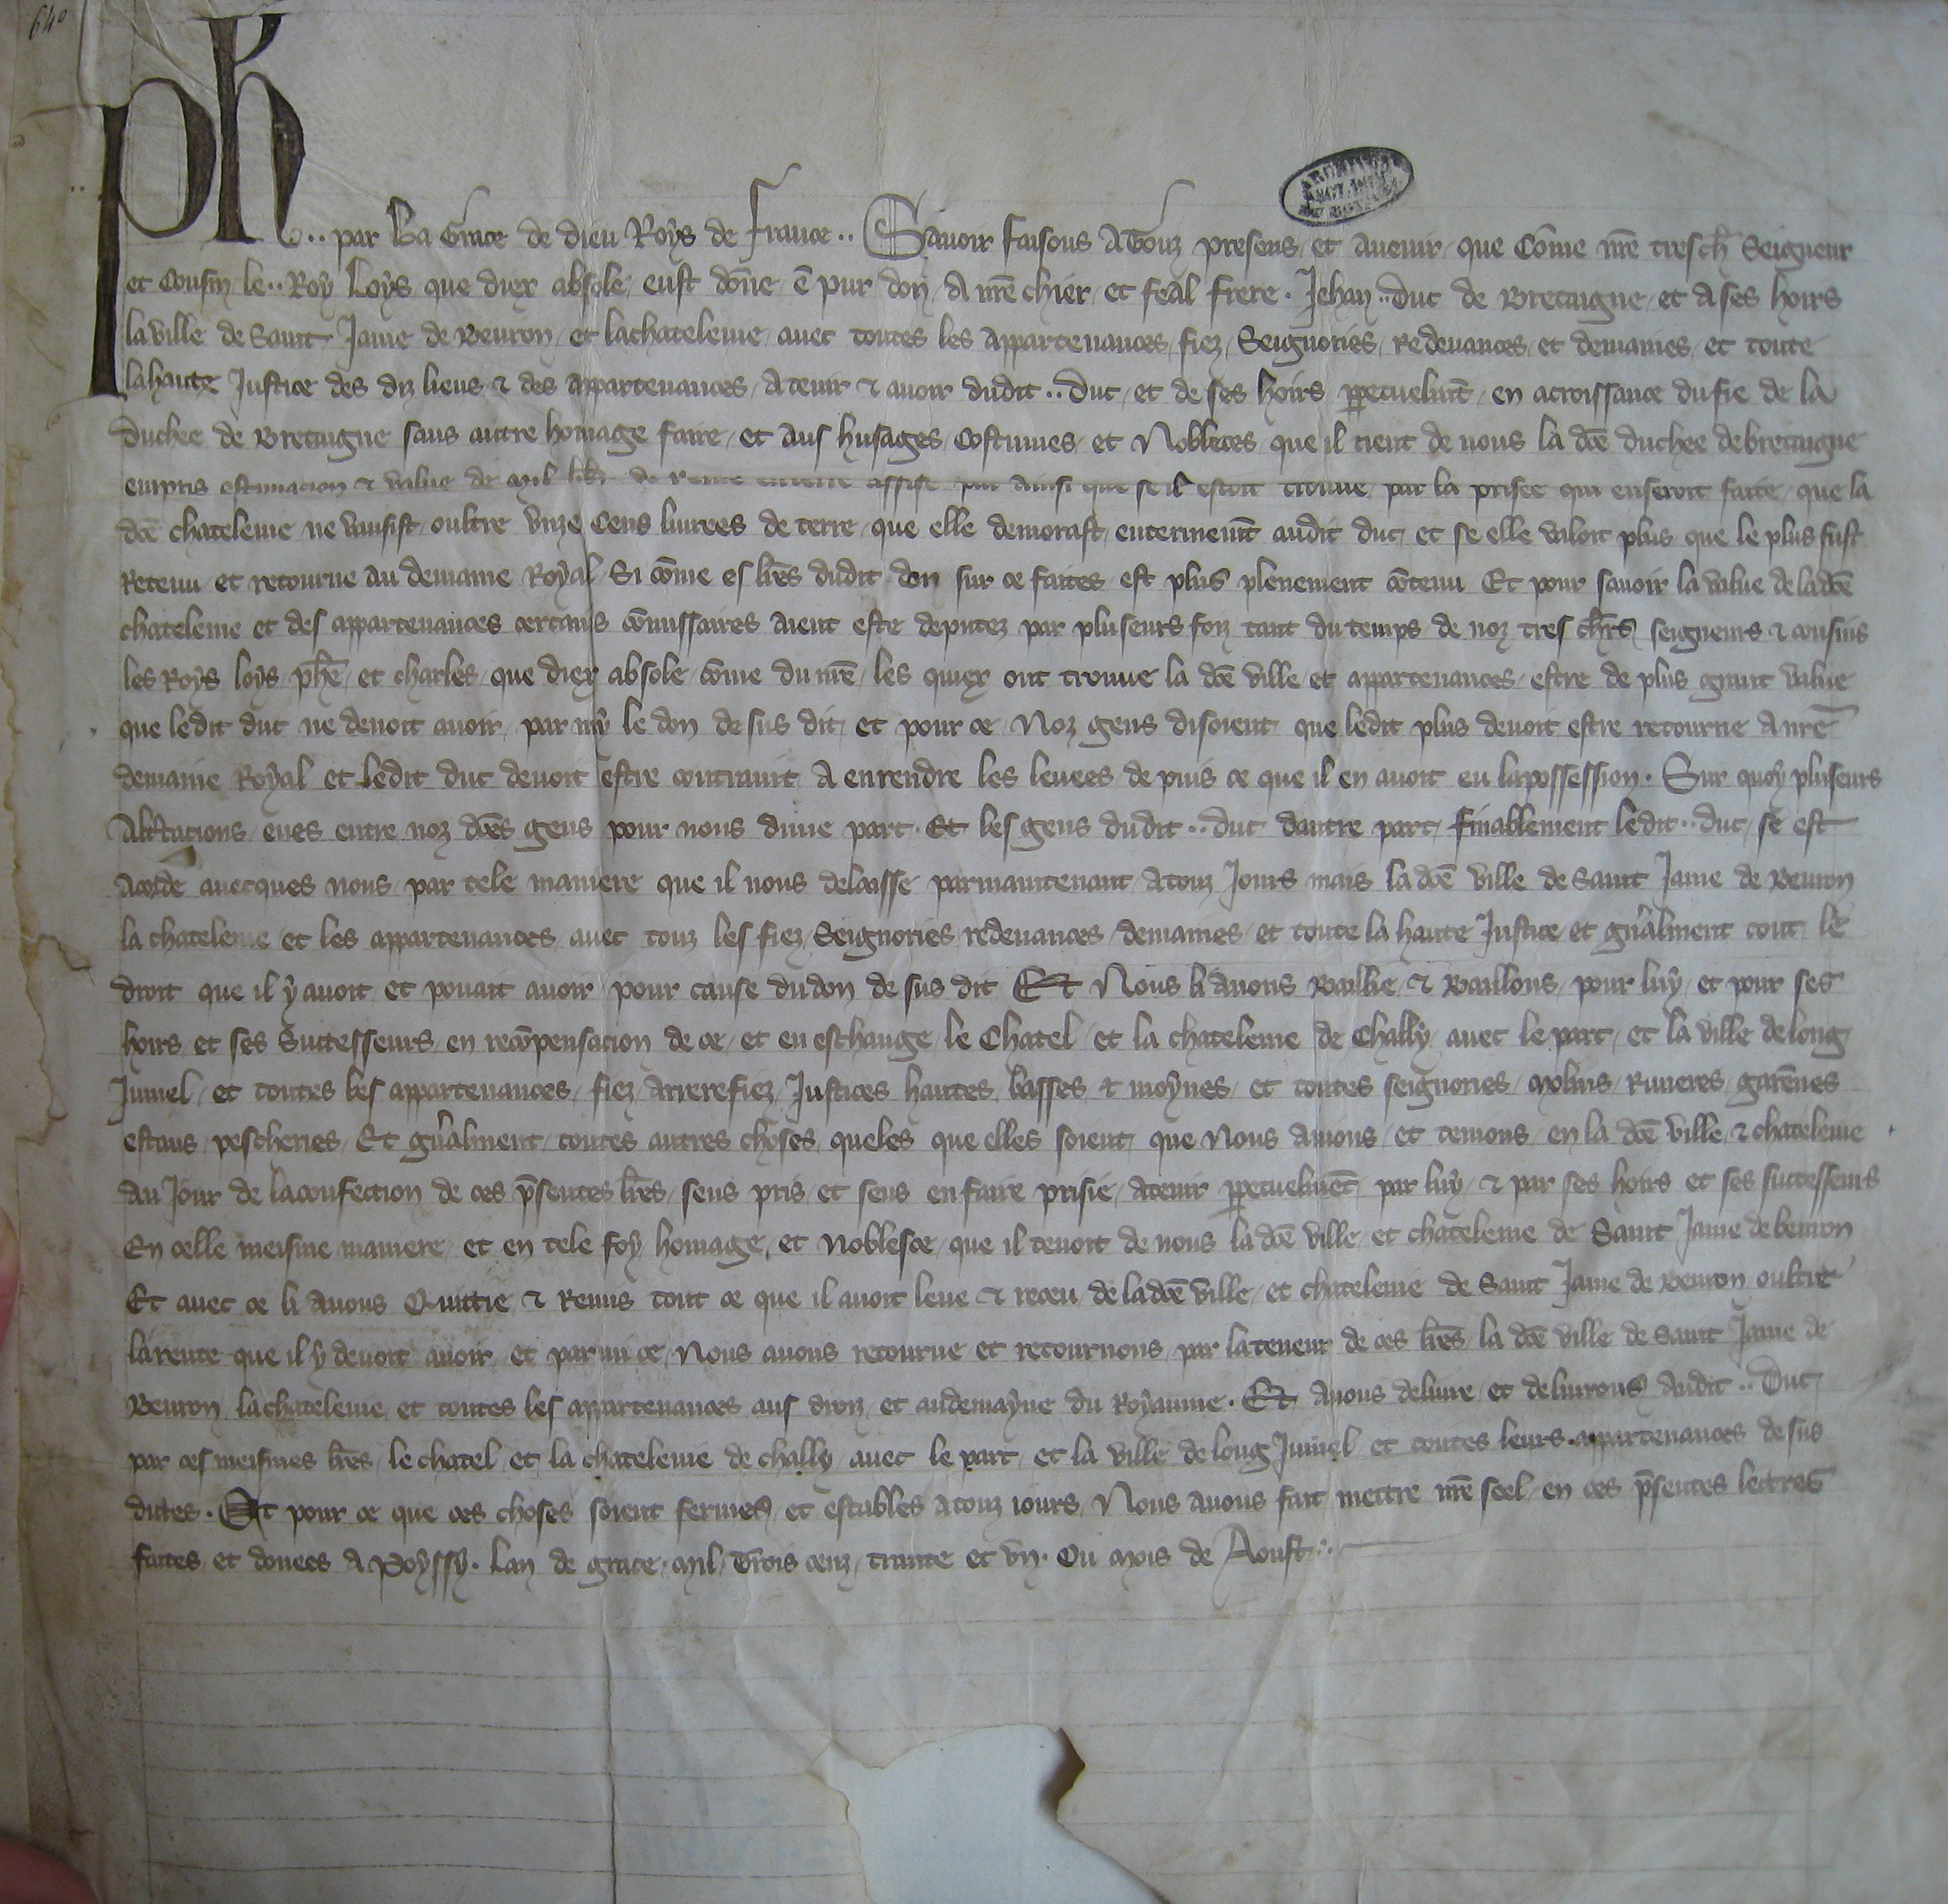 640
Ph.. par La Grace de dieu Roys de France.. Savoir faisons A Touz presens et avenir que Cõme nr̃e tresch̃ Seigneur
et Cousin le.. Roy Loys que diex absole eust dõne ẽ pur don A nr̃e chier et feal frere. Jehan.. duc de Bretaigne et a ses hoirs
la ville de Saint Jame de Beuron et la chatelenie avec toutes les appartenances fiez Seignories Redevances et demaines et toute
la haute Justice des diz lieus & des appartenances A tenir & avoir dudit.. Duc et de ses hoirs ꝑpetuelmt̃ en acroissance du fie de la
Duchee de Bretaigne sans autre homage faire et aus husages Costumes et Nobleces que il tient de nous la dc̃e duchee de bretaigne
en pris estimacion & value de mil lib̃ de rente en terre assise par ainsi que se il estoit trouve par la prisee qui en seroit faite que la
dc̃e chatelenie ne vausist oultre unze Cens livrees de terre que elle demorast enterinemt̃ audit duc et se elle valoit plus que le plus fust
Retenu et retourne au demaine Royal Si cõme es lr̃es dudit don sur ce faites est plus plenement cõtenu Et pour savoir la value de la dc̃e
chatelenie et des appartenances certains cõmissaires aient este deputez par pluseurs foiz tant du temps de noz tres chr̃s seigneurs & cousins
les Roys loys ph̃e et charles que diex absole cõme du nr̃e les quiex ont trouve la dc̃e ville et appartenances estre de plus grant value
que ledit duc ne devoit avoir par my le don de sus dit et pour ce Noz gens disoient que ledit plus devoit estre retourne a nr̃e
demaine Royal et ledit duc devoit estre contraint A en rendre les levees de puis ce que il en avoit eu la possession. Sur quoy pluseurs
Alt̃cacions eues entre noz dc̃es gens pour nous dune part. Et les gens dudit.. duc dautre part finablement ledit.. duc se est
Acorde avecques nous par tele maniere que il nous delaisse par maintenant A touz Jours mais la dc̃e ville de Saint Jame de Beuron
la chatelenie et les appartenances avec touz les fiez Seignories redevances demaines et toute la haute Justice et gñalment tout le
droit que il y avoit et povait avoir pour cause du don de sus dit Et Nous li avons Baillie & Baillons pour luy et pour ses
hoirs et ses Successeurs en recõpensacion de ce et en eschange le Chatel et la chatelenie de Chally avec le parc et la ville de long
Jumel et toutes les appartenances fiez Arrerefiez Justices hautes basses & moynes et toutes seignories molins Rivieres garẽnes
estans pescheries Et gñalment toutes autres choses queles que elles soient que Nous avions et tenions en la dc̃e ville & chatelenie
Au Jour de la confection de ces p̃sentes lr̃es sens pris et sens en faire prisie A tenir ꝑpetuelmẽt par luy & par ses hoirs et ses successeurs
En celle meisme maniere et en tele foy homage et noblesce que il tenoit de nous la dc̃e ville et chatelenie de Saint Jame de beuron
Et avec ce li avons Quittie & Remis tout ce que il avoit leve & receu de la dc̃e ville et chatelenie de Saint Jame de Beuron oultre
la rente que il y devoit avoir et par mi ce Nous avons retourne et retournons par la teneur de ces lr̃es la dc̃e ville de Saint Jame de
Beuron la chatelenie et toutes les appartenances aus droiz et au demayne du Royaume. Et avons delivre et delivrons Audit.. Duc
par ces meismes lr̃es le chatel et la chatelenie de chally avec le parc et la ville de long Jumel et toutes leurs appartenances de sus
dites. Et pour ce que ces choses soient fermes et estables A touz jours Nous avons fait mettre nr̃e seel en ces p̃sentes lettres
faites et donees A Poyssy. Lan de grace. mil Trois cenz trante et un. Ou mois de Aoust